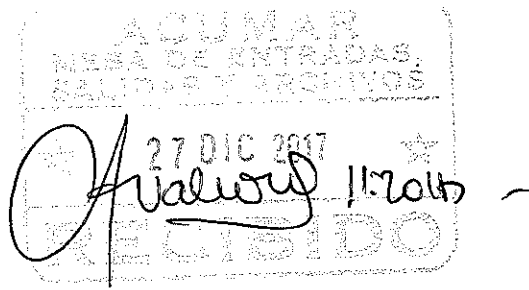 ACUMAR
MESA DE ENTRADAS,
SALIDAS Y ARCHIVOS
27 DIC 2017
11:20hs -
RECIBIDO